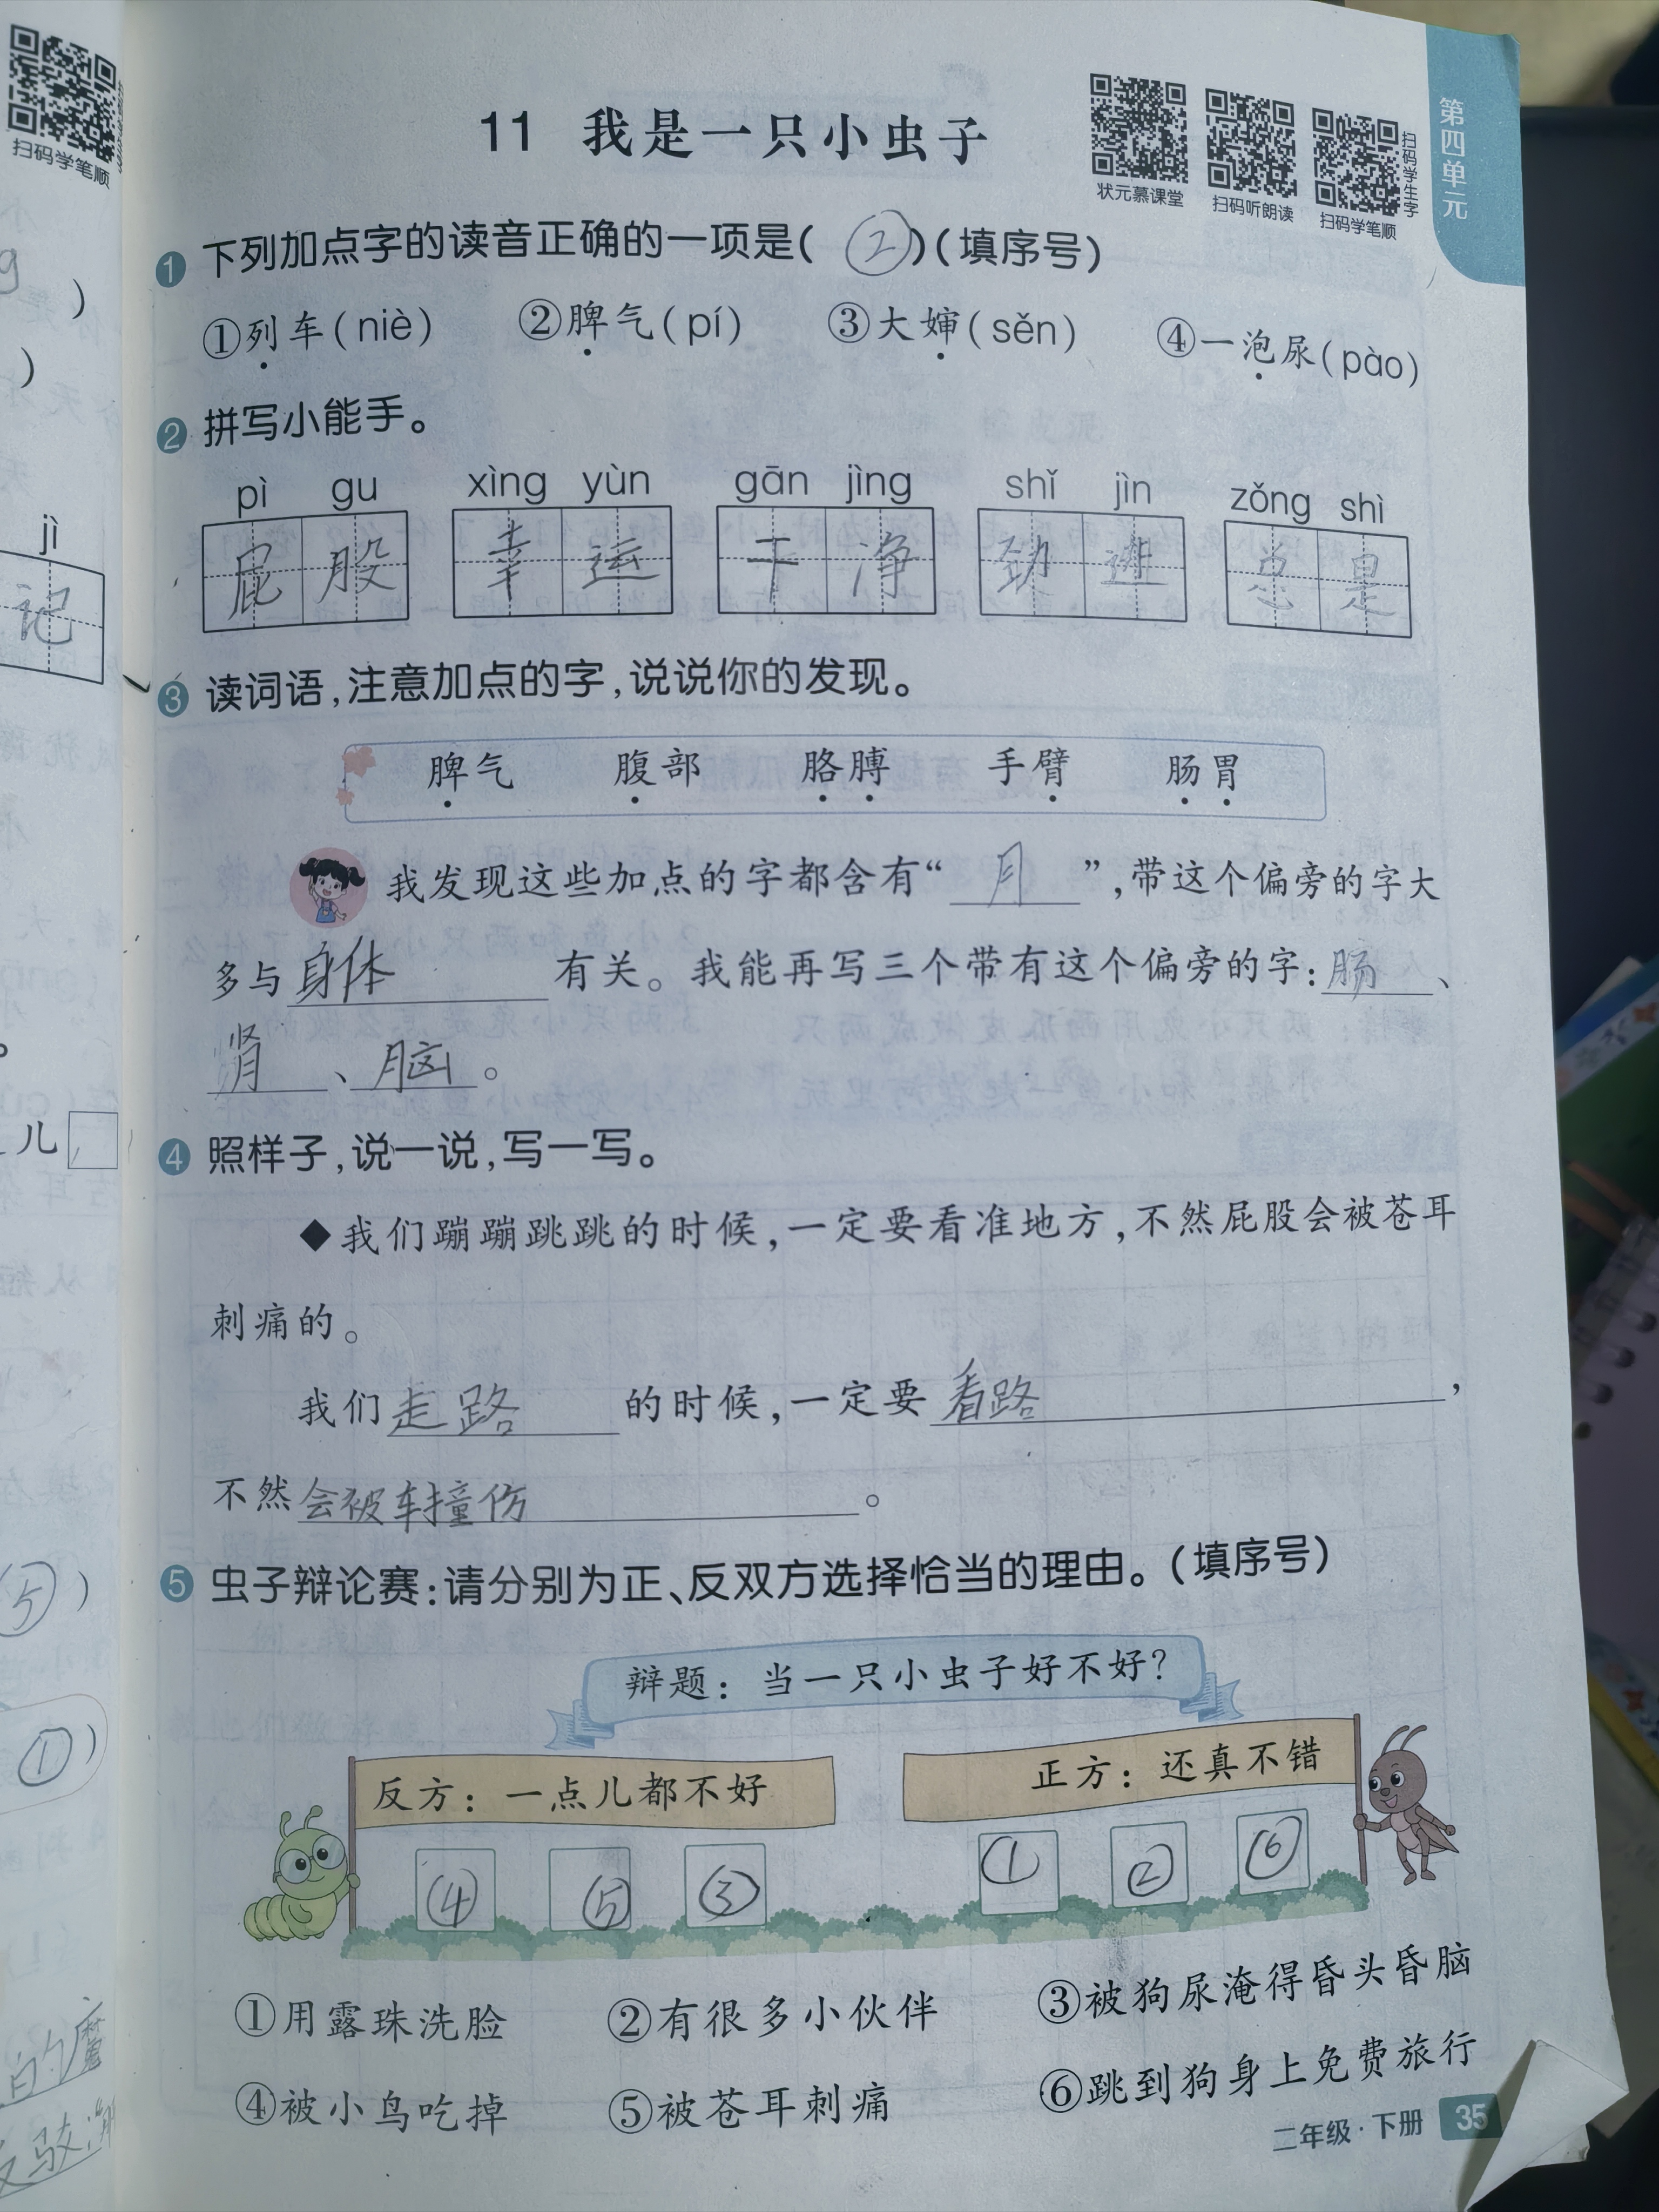 扫码学笔顺
11 我是一只小虫子
状元慕课堂
扫码听朗读
扫码学笔顺
扫码学生字
第四单元
1 下列加点字的读音正确的一项是( ② )(填序号)
①列车(niè) ②脾气(pí) ③大婶(sěn) ④一泡尿(pào)
2 拼写小能手。
pì gu xìng yùn gān jìng shǐ jìn zǒng shì
屁股 幸运 干净 劲进 总是
3 读词语,注意加点的字,说说你的发现。
脾气 腹部 胳膊 手臂 肠胃
我发现这些加点的字都含有“月”,带这个偏旁的字大
多与身体有关。我能再写三个带有这个偏旁的字:肠、
肾、脑。
4 照样子,说一说,写一写。
◆我们蹦蹦跳跳的时候,一定要看准地方,不然屁股会被苍耳
刺痛的。
我们走路的时候,一定要看路,
不然会被车撞伤。
5 虫子辩论赛:请分别为正、反双方选择恰当的理由。(填序号)
辩题:当一只小虫子好不好?
反方:一点儿都不好 正方:还真不错
④ ⑤ ③ ① ② ⑥
①用露珠洗脸 ②有很多小伙伴 ③被狗尿淹得昏头昏脑
④被小鸟吃掉 ⑤被苍耳刺痛 ⑥跳到狗身上免费旅行
二年级·下册 35
jì
记
儿
⑤ )
① )
的魔